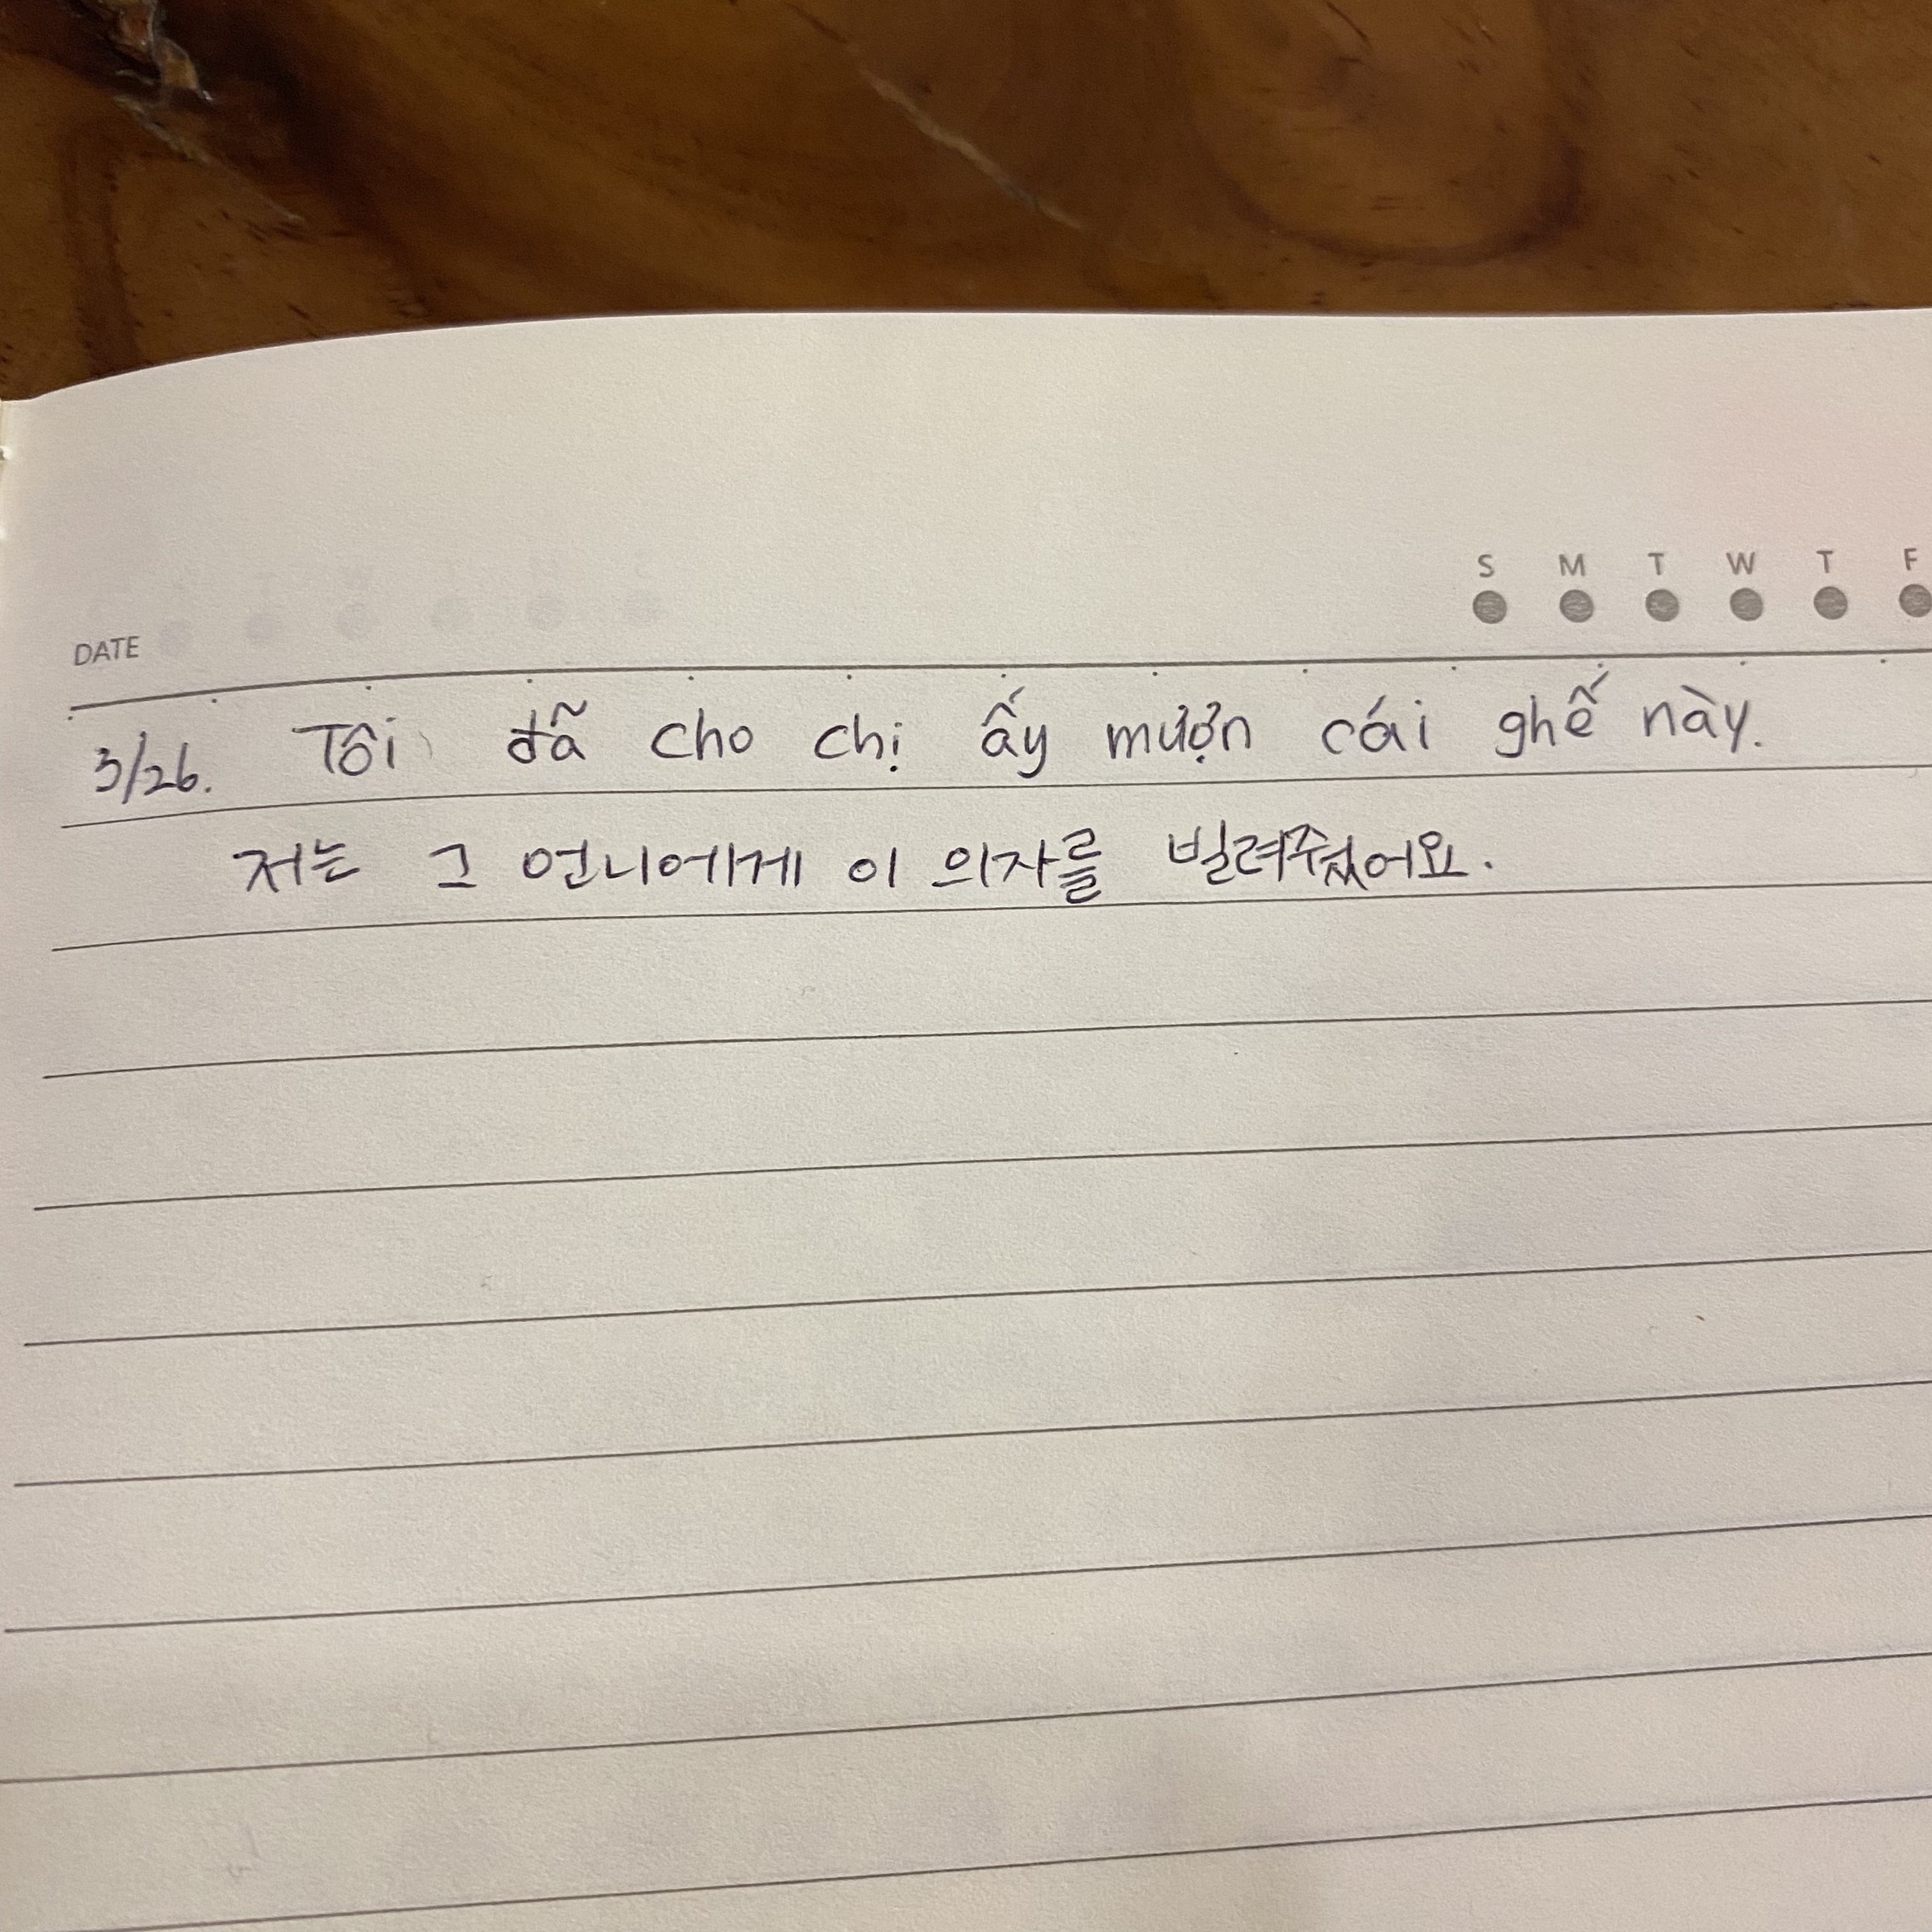 S M T W T F
DATE
3/26. Tôi đã cho chị ấy mượn cái ghế này.
저는 그 언니에게 이 의자를 빌려줬어요.